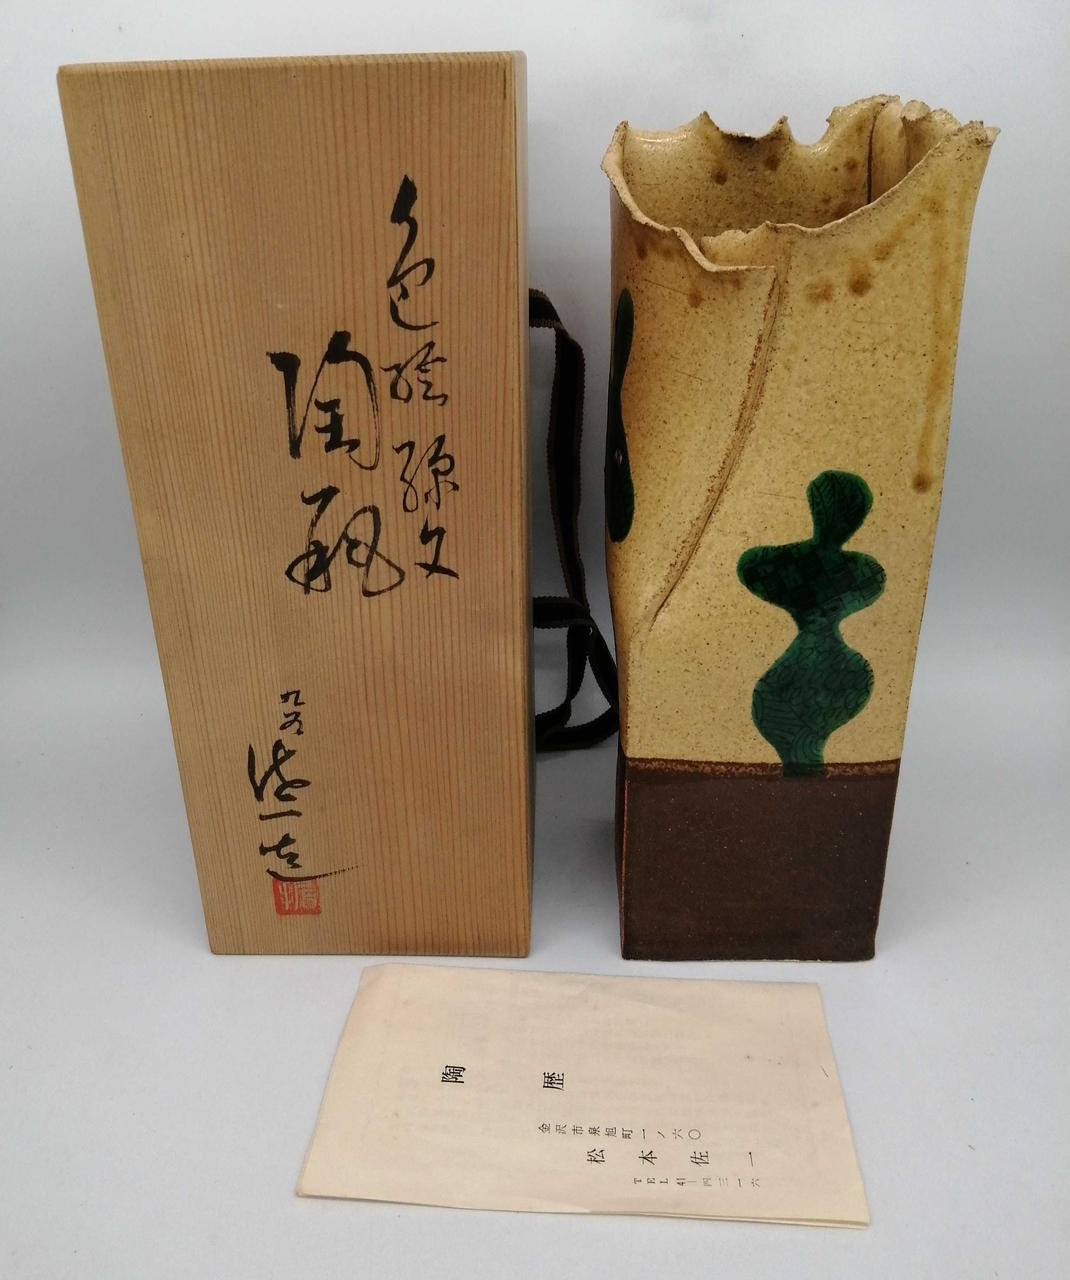 色絵線文
陶瓶
九谷
佐一造
陶歴
金沢市泉旭町一ノ六〇
松本佐一
TEL 41―四三一六